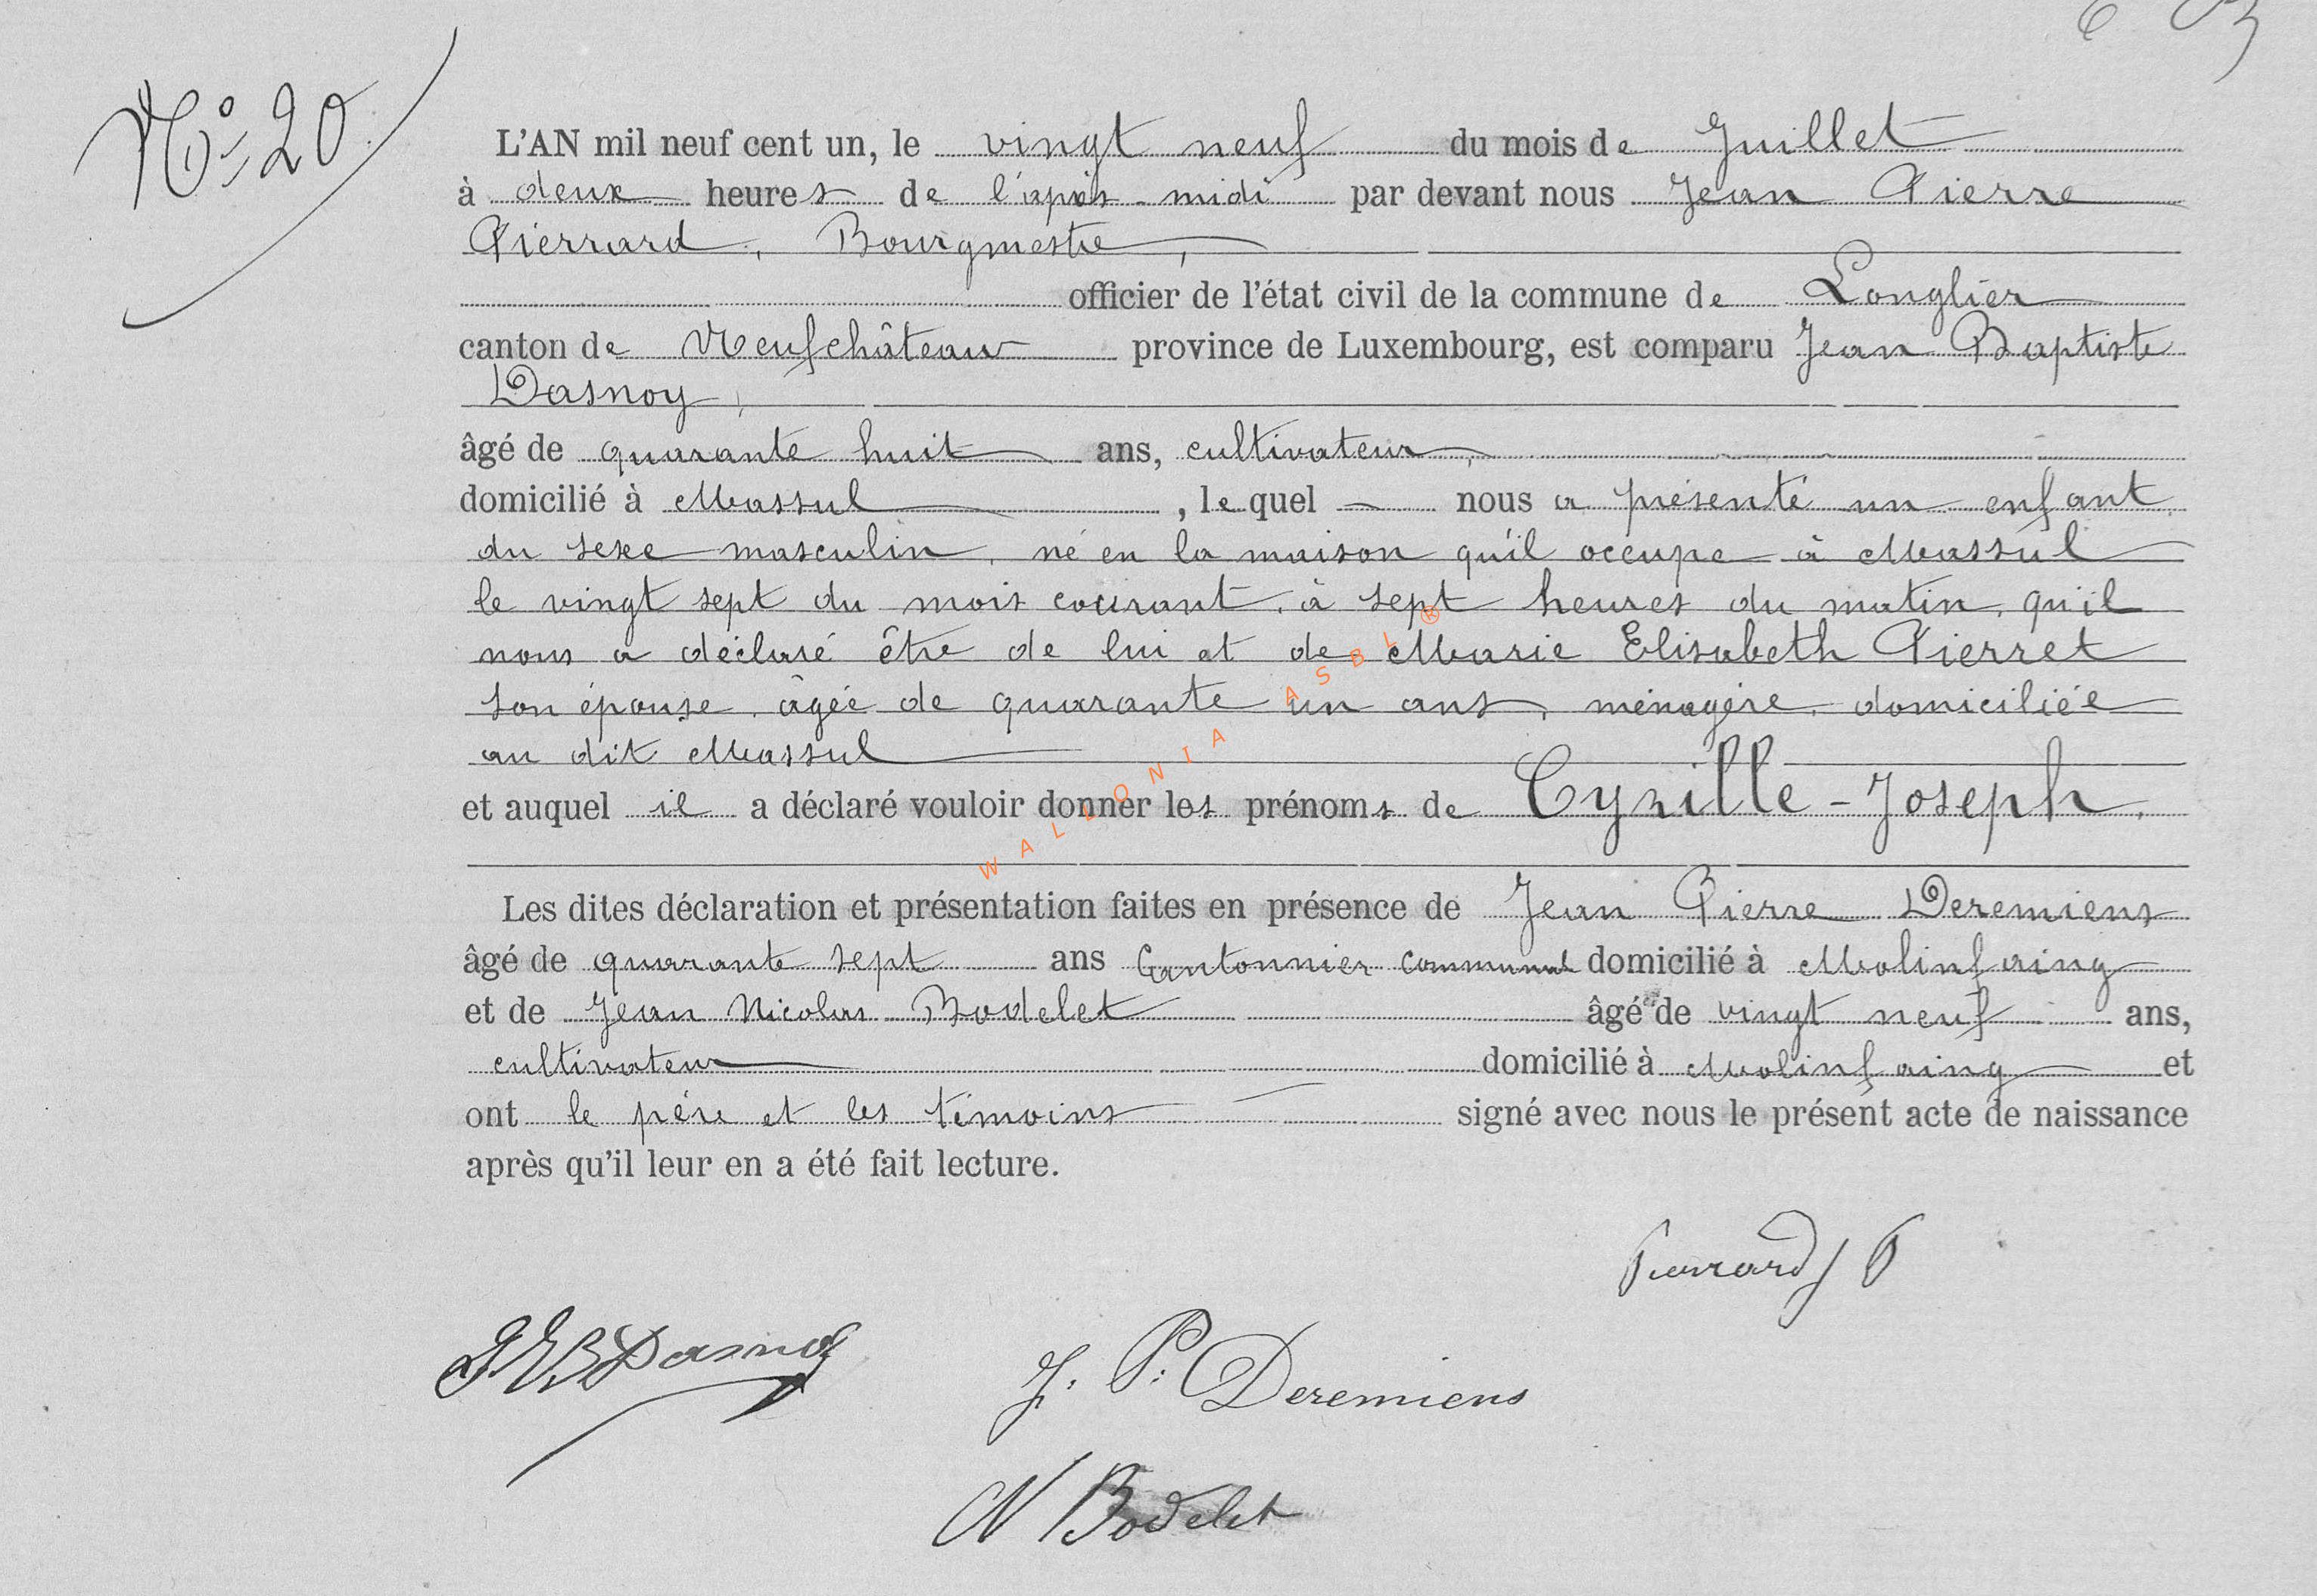 No 20
L'AN mil neuf cent un, le vingt neuf du mois de Juillet
à deux heures de l'après-midi par devant nous Jean Pierre
Pierrard, Bourgmestre,
officier de l'état civil de la commune de Longlier
canton de Neufchâteau province de Luxembourg, est comparu Jean Baptiste
Dasnoy,
âgé de quarante huit ans, cultivateur,
domicilié à Massul, lequel nous a présenté un enfant
du sexe masculin, né en la maison qu'il occupe à Massul
le vingt sept du mois courant, à sept heures du matin, qu'il
nous a déclaré être de lui et de Marie Elisabeth Pierret
son épouse, âgée de quarante un ans, ménagère, domiciliée
au dit Massul
et auquel il a déclaré vouloir donner les prénoms de Cyrille-Joseph.
Les dites déclaration et présentation faites en présence de Jean Pierre Deremiens
âgé de quarante sept ans Cantonnier communal domicilié à Molinfaing
et de Jean Nicolas Bodelet âgé de vingt neuf ans,
cultivateur domicilié à Molinfaing et
ont le père et les témoins signé avec nous le présent acte de naissance
après qu'il leur en a été fait lecture.
Pierrard J P
J B Dasnoy
J. P. Deremiens
N Bodelet
WALLONIA ASBL ®